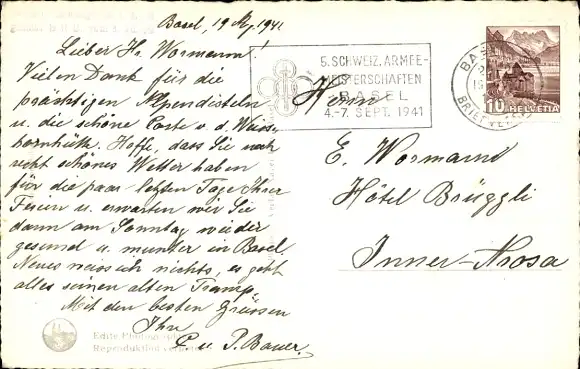 Basel, 19 Aug. 1941
Lieber Hr. Wormann!
Vielen Dank für die
prächtigen Alpendisteln
u. die schöne Carte v. d. Weiss-
hornhütte. Hoffe, dass Sie noch
recht schönes Wetter haben
für die paar letzten Tage Ihrer
Ferien u. erwarten wir Sie
dann am Sonntag wieder
gesund u. munter in Basel
Neues weiss ich nichts, es geht
alles seinen alten Tramp.
Mit den besten Grüssen
Ihr
C u. P. Bauer.
5. SCHWEIZ. ARMEE-
MEISTERSCHAFTEN
BASEL
4.-7. SEPT. 1941
BAS
BRIEFVERS
10 HELVETIA
Herrn
E. Wormann
Hôtel Brüggli
Inner-Arosa
Edite Photoglob
Reproduktion